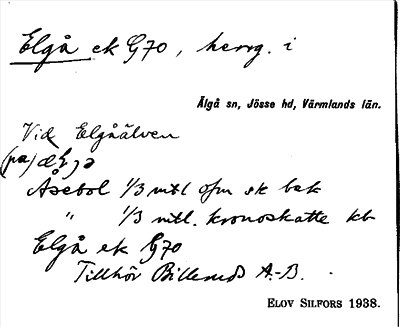 Elgå ek G70, herrg. i
Älgå sn, Jösse hd, Värmlands län.
Vid Elgåälven
(på)
Åsebol 1/3 mtl ofm sk bsk
" 1/3 mtl. kronoskatte kb
Elgå ek G70
Tillhör Billeruds A.-B.
ELOV SILFORS 1938.